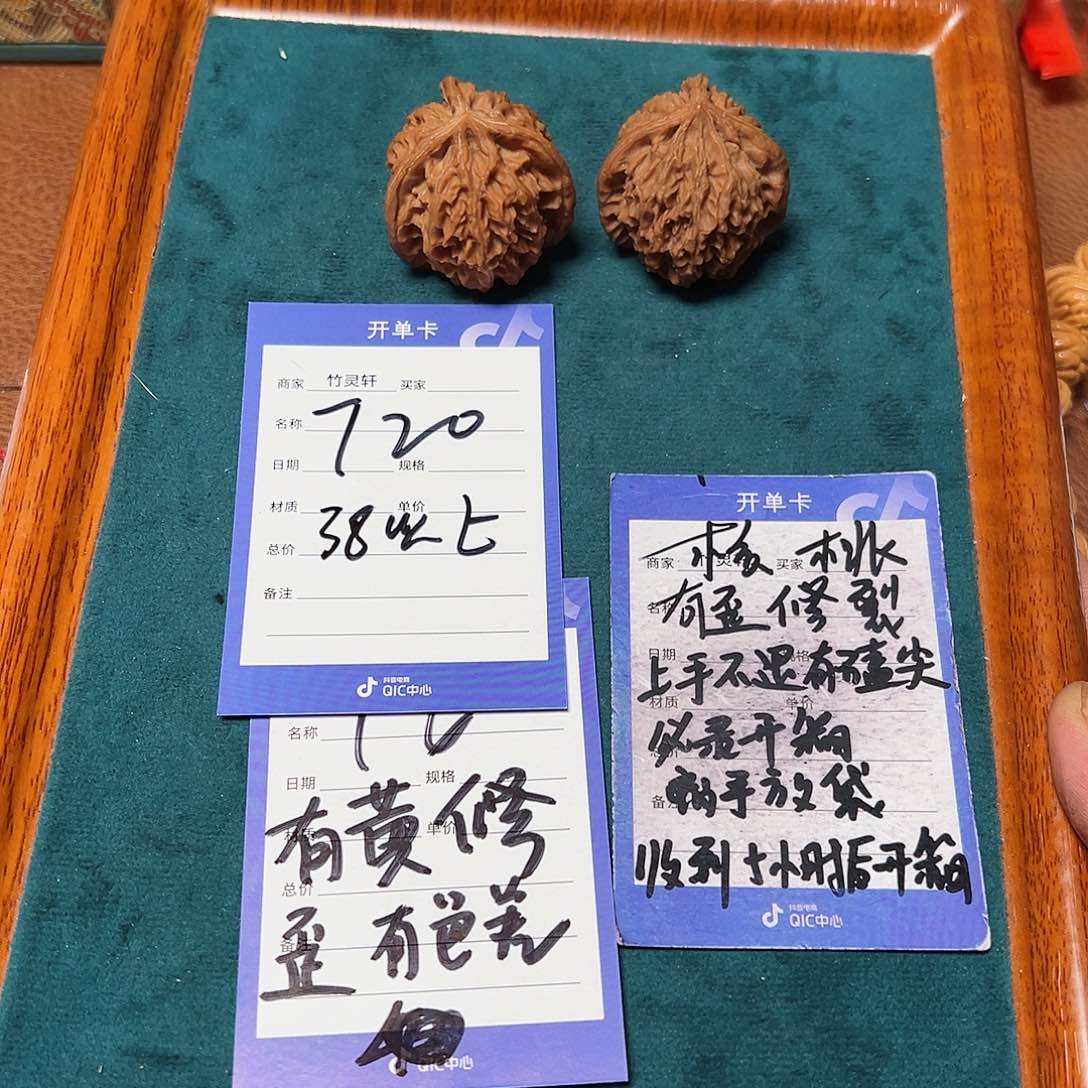 开单卡
商家 竹灵轩 买家
名称 720
日期 规格
材质 单价
38以上
总价
备注
抖音电商
QIC中心
名称
日期 规格
有黄修
材质 单价
总价
歪 有色差
备注
QIC中心
开单卡
核桃
商家 买家
有歪修裂
名称
日期 规格
上手不退有磕尖
材质 单价
必录开箱
备
收到 小时后开箱
抖音电商
QIC中心